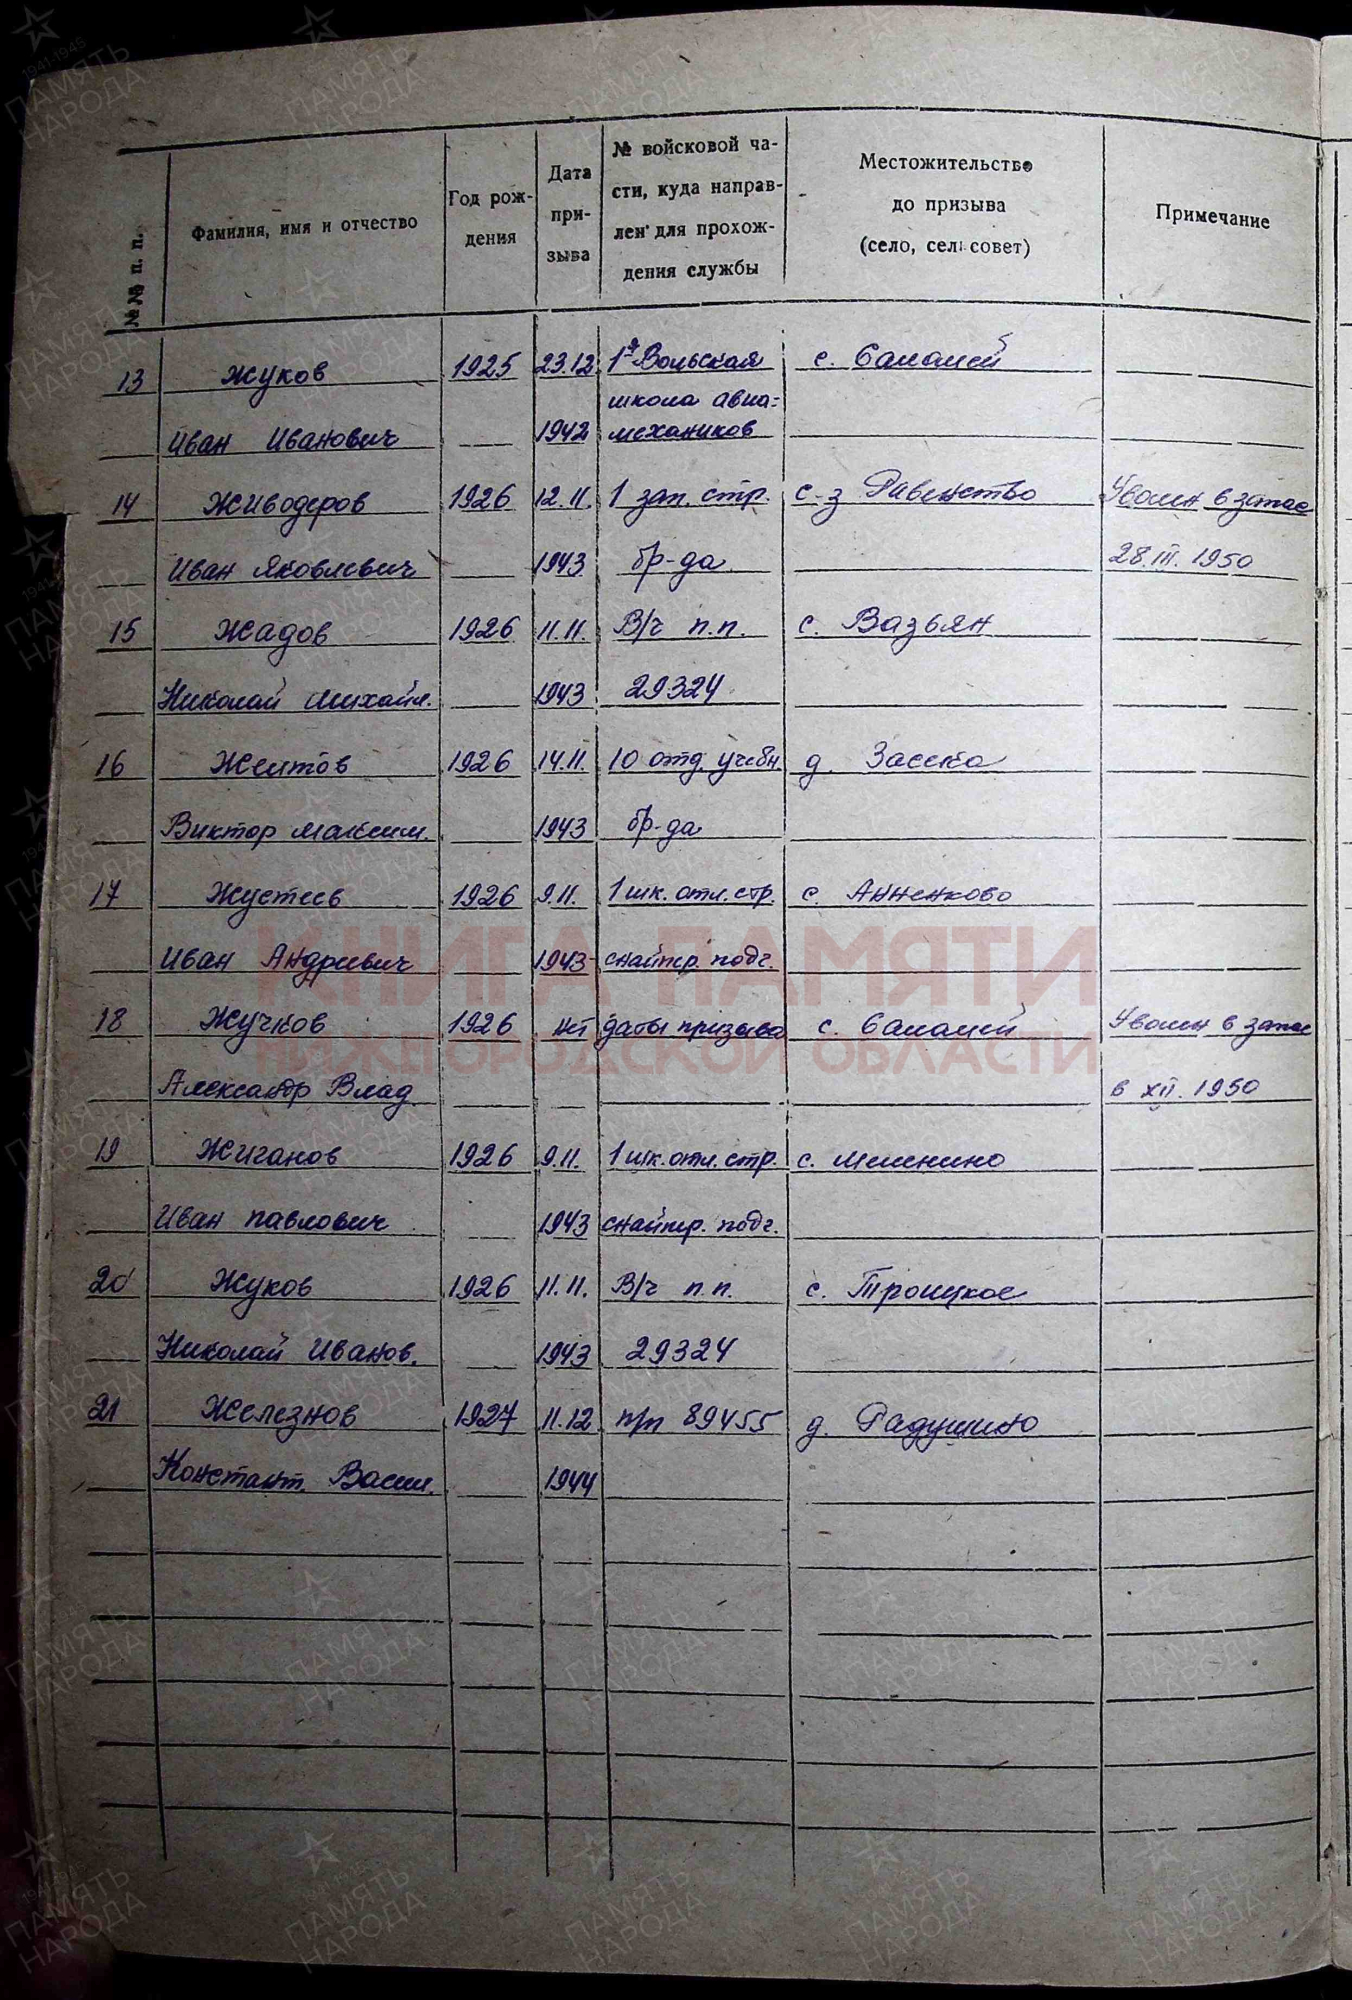 №№ п. п.
Фамилия, имя и отчество
Год рож-
дения
Дата
при-
зыва
№ войсковой ча-
сти, куда направ-
лен для прохож-
дения службы
Местожительство
до призыва
(село, сельсовет)
Примечание
13 Жуков 1925 23.12 1я Вольская с. Салалей
школа авиа=
Иван Иванович 1942 механиков
14 Живодеров 1926 12.11. 1 зап. стр. с-з Равенство Уволен в запас
Иван Яковлевич 1943 бр-да 28.III.1950
15 Жадов 1926 11.11. В/ч п.п. с. Вазьян
Николай Михайл. 1943 29324
16 Желтов 1926 14.11. 10 отд. учебн. д. Засека
Виктор Максим. 1943 бр-да
17 1926 9.11. 1 шк. отл. стр. с. Анненково
Иван Андреевич 1943 снайпер. подг.
18 Жучков 1926 нет даты призыва с. Салалей Уволен в запас
Александр Влад. в XII.1950
19 Жиганов 1926 9.11. 1 шк. отл. стр. с.
Иван Павлович 1943 снайпер. подг.
20 Жуков 1926 11.11. В/ч п.п. с. Троицкое
Николай Иванов. 1943 29324
21 Железнов 1927 11.12 п/п 89455 д.
Констант. Васил. 1944
КНИГА ПАМЯТИ
НИЖЕГОРОДСКОЙ ОБЛАСТИ
1941-1945
ПАМЯТЬ
НАРОДА